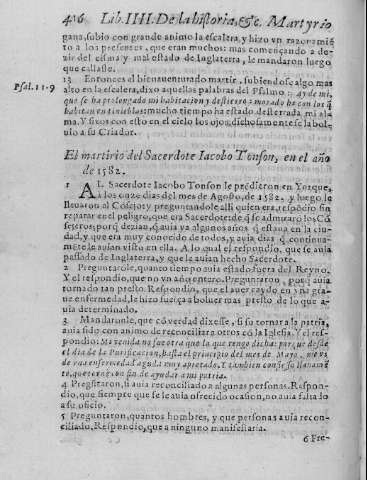 416 Lib. IIII. De la historia, &c. Martyrio
gana, subio con grande animo la escalera, y hizo vn razonamiẽ
to a los presentes, que eran muchos: mas començando a de-
zir del cisma y mal estado de Inglaterra, le mandaron luego
que callasse.
13 Entonces el bienauenturado martir, subiendose algo mas
Psal. 119
alto en la escalera, dixo aquellas palabras del Psalmo: Ay de mi,
que se ha prolongado mi habitacion y destierro: morado he con los q̃
habitan en tinieblas: mucho tiempo ha estado desterrada mi al-
ma. Y fixos con esto en el cielo los ojos, dichosamente se bol-
uio a su Criador.
El martirio del Sacerdote Iacobo Tonson, en el año
de 1582.
1 AL Sacerdote Iacobo Tonson le prẽdieron en Yorque,
a los onze dias del mes de Agosto, de 1582. y luego le
lleuaron al Cõsejo: y preguntandole alli quien era, respõdio sin
reparar en el peligro, que era Sacerdote: de q̃ se admirarõ los Cõ
sejeros; porq̃ dezian, q̃ auia ya algunos años q̃ estaua en la ciu-
dad, y que era muy conocido de todos, y auia dias q̃ continua-
mente le auian visto en ella. A lo qual el respondio, que se auia
passado de Inglaterra, y que le auian hecho Sacerdote.
2 Preguntarole, quanto tiempo auia estado fuera del Reyno.
Y el respondio, que no vn año entero. Preguntaron, porq̃ auia
tornado tan presto. Respondio, que el auer caydo en vna gra-
ue enfermedad, le hizo fuerça a boluer mas presto de lo que a-
uia determinado.
3 Mandaronle, que cõ verdad dixesse, si su tornar a la patria,
auia sido con animo de reconciliar a otros cõ la Iglesia. Y el res-
pondio: Mi venida no fue otra que la que tengo dicha: porque desde
el dia de la Purificacion, hasta el principio del mes de Mayo, me vi
de vna enfermedad aguda muy apretado. Y tambien confiesso llanamẽ
te, que torne con fin de ayudar a mi patria.
4 Pregũtaron, si auia reconciliado a algunas personas. Respon-
dio, que siempre que se le auia ofrecido ocasion, no auia faltado
a su oficio.
5 Preguntaron, quantos hombres, y que personas auia recon-
ciliado. Respondio, que a ninguno manifestaria.
6 Pre-